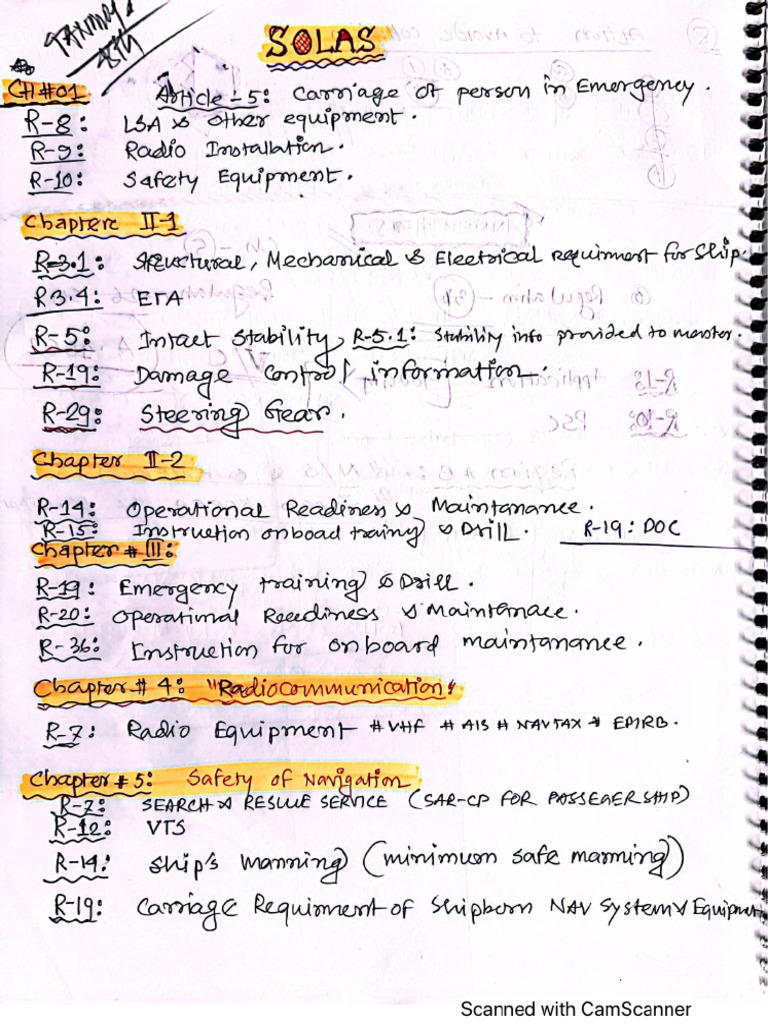 TANMOY
58TH
SOLAS
CH#01 Article-5: Carriage of person in Emergency.
R-8: LSA & other equipment.
R-9: Radio Installation.
R-10: Safety Equipment.
Chapter II-1
R-3.1: Structural, Mechanical & Electrical requirment for Ship.
R3.4: ETA
R-5: Intact Stability, R-5.1: Stability info provided to master.
R-19: Damage Control information.
R-29: Steering Gear.
Chapter II-2
R-14: Operational Readiness & Maintanance.
R-15: Instruction onboad trainy & Drill. R-19: DOC
Chapter # III:
R-19: Emergency training & Drill.
R-20: Operational Reediness & Maintenace.
R-36: Instruction for onboard maintanance.
Chapter # 4: "Radiocommunication"
R-7: Radio Equipment # VHF # AIS # NAVTAX # EPIRB.
Chapter # 5: Safety of Navigation
R-7: SEARCH & RESCUE SERVICE (SAR-CP FOR PASSEGER SHIP)
R-12: VTS
R-14: Ship's Manning (minimum safe manning)
R-19: Carriage Requirment of Shipborn NAV System & Equipment
Scanned with CamScanner